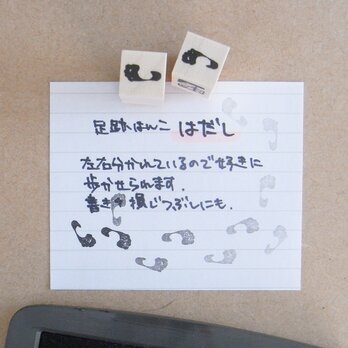 足跡はんこ はだし
左右分かれているので好きに
歩かせられます.
書き損じつぶしにも.